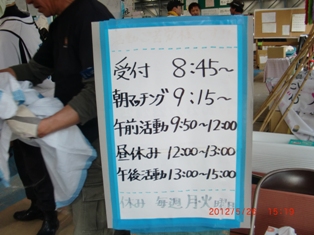 受付 8:45~
朝マッチング 9:15~
午前活動 9:50~12:00
昼休み 12:00~13:00
午後活動 13:00~15:00
休み 毎週 月・火曜日